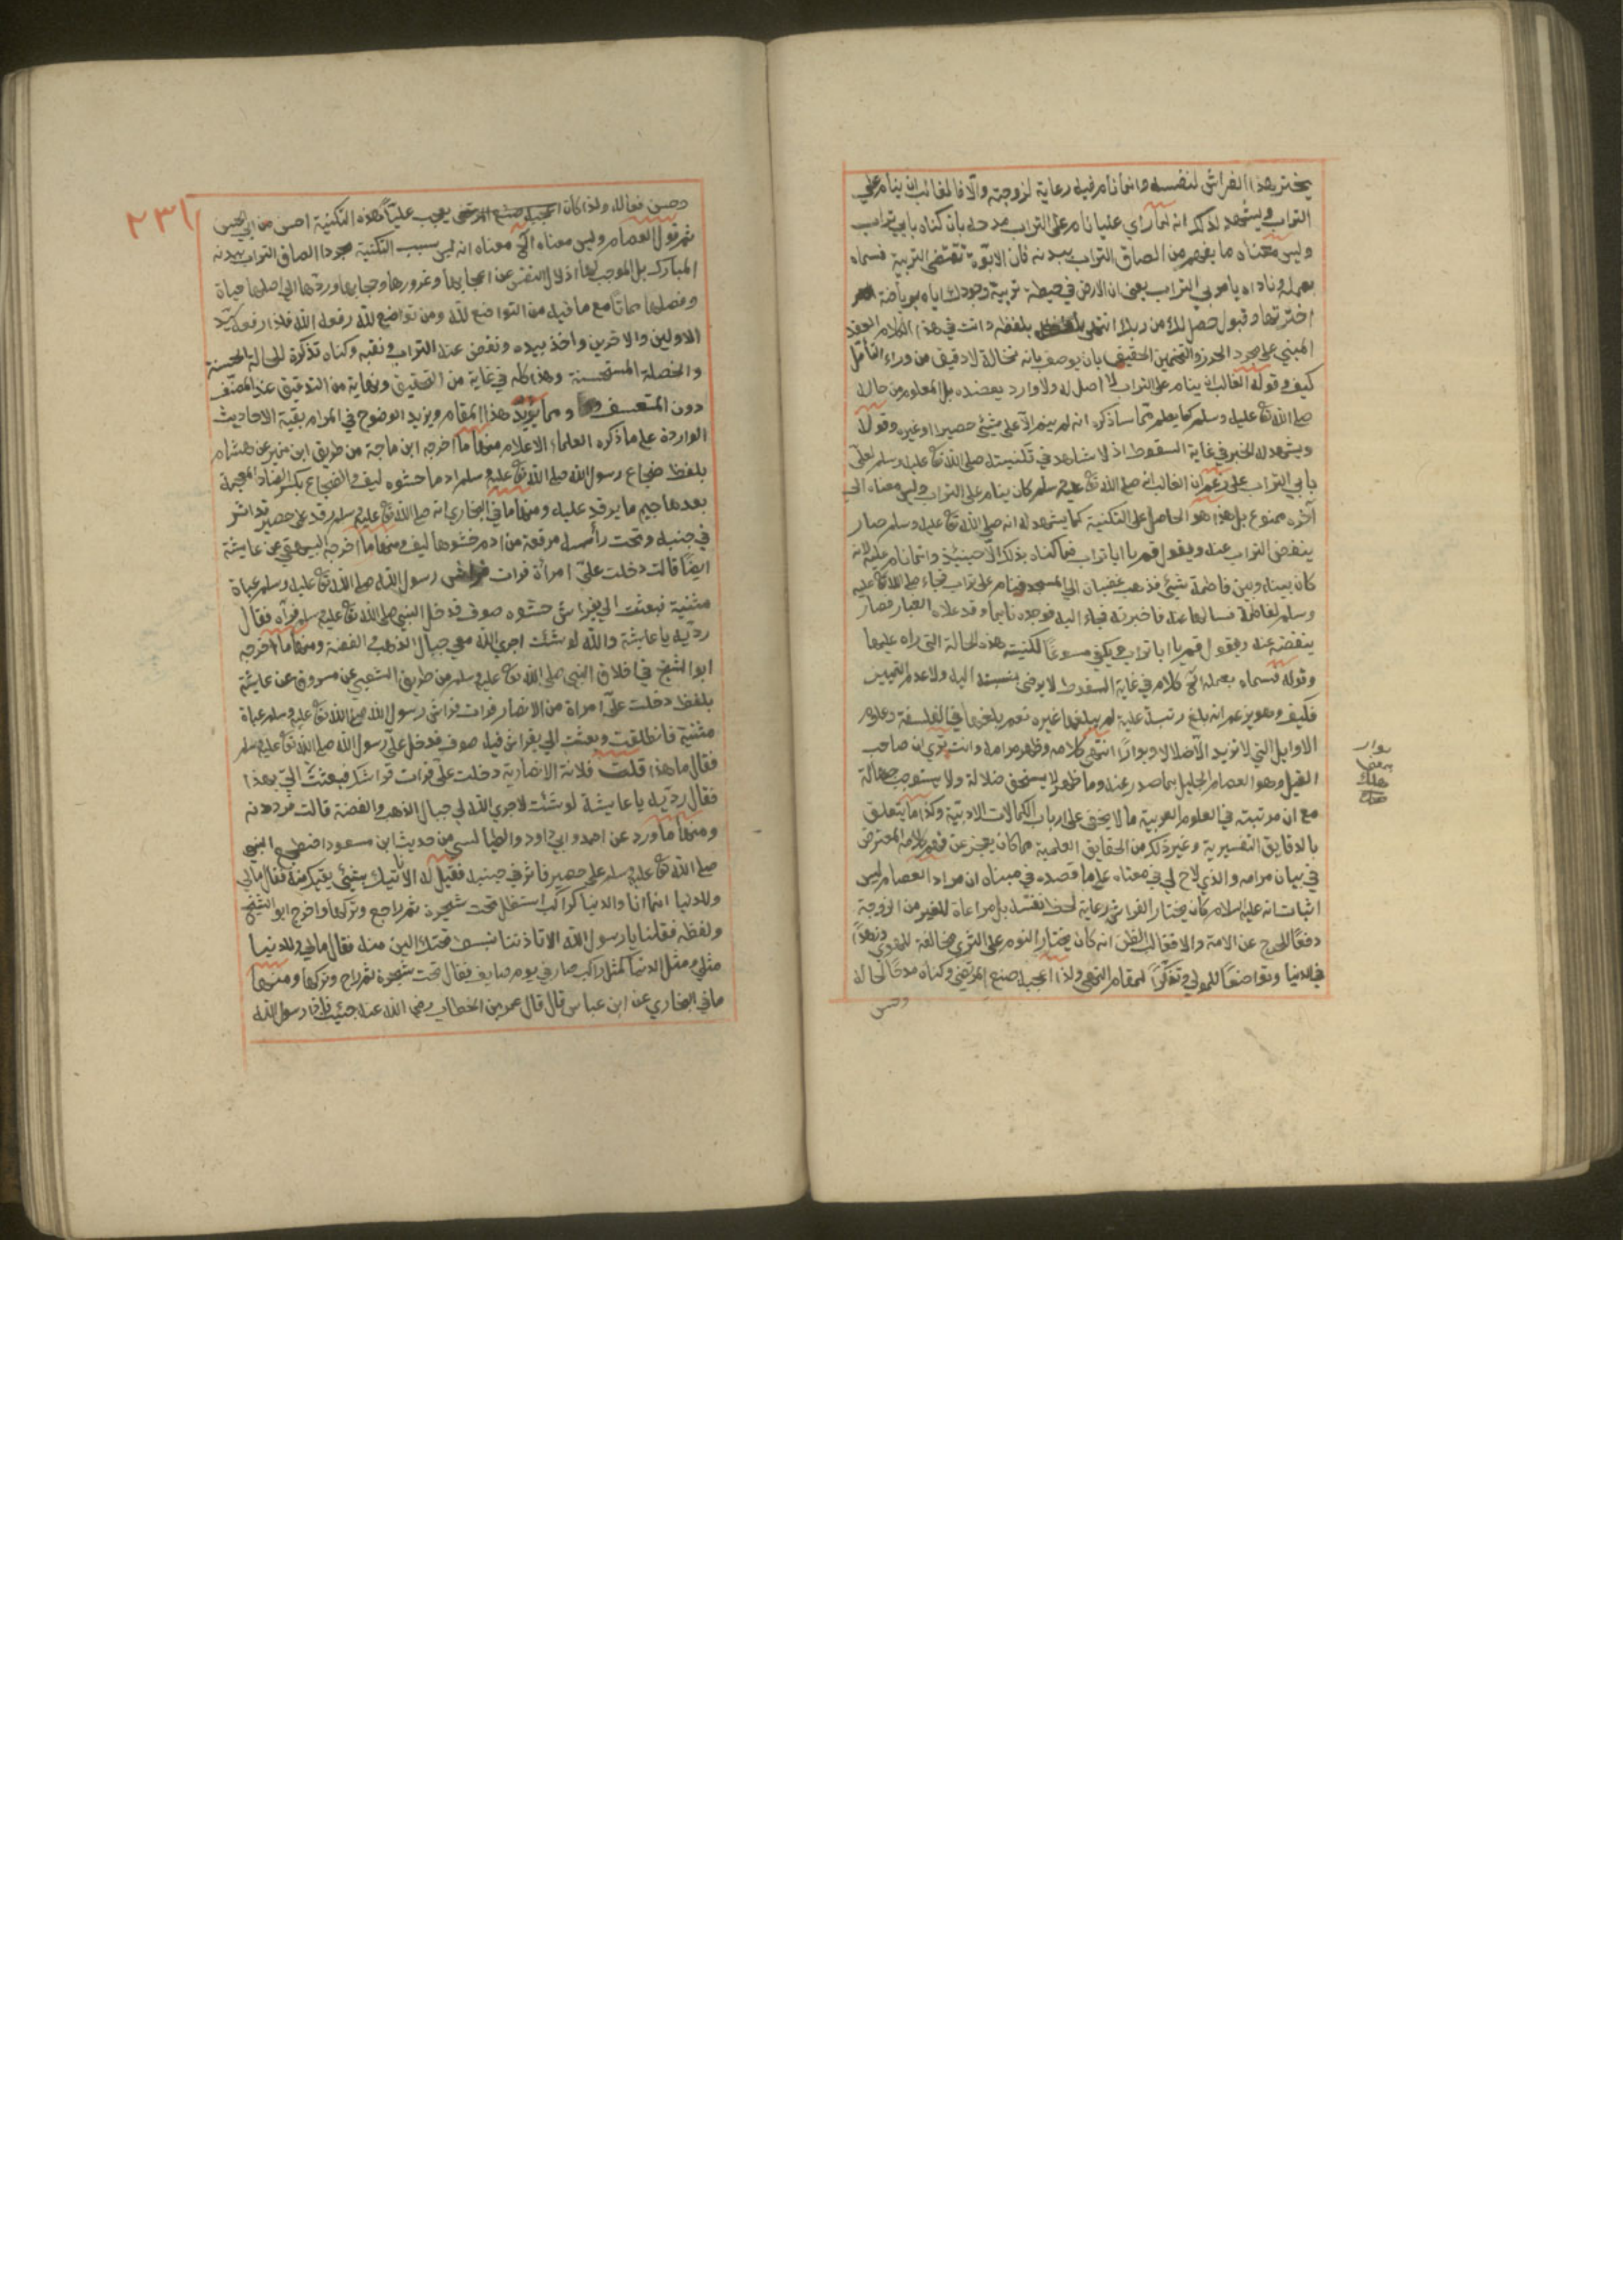 يختر بهذا الفراش لنفسه وانما نام فيه رعاية لزوجته والا فالغالب انه ينام على
التراب ويشهد لذلك انه لما رأي عليا نام على التراب مدحه بان كناه بابي تراب
وليس معناه ما يفهم من الصاق التراب ببدنه فان الابوة تقتضى التربية فسماه
بعمله وناداه يا مربي التراب يعني ان الارض في حيطة تربية وجودك اياه برياضة
اخترتها وقبول حصل لك من ربك انتهى بلفظه وانت في هذا الكلام المعقد
المبني على مجرد الحرز والتخمين الحقيقي بان يوصف بانه نخالة لا دقيق من وراء التأمل
كيف وقوله الغالب انه ينام على التراب لا اصل له ولا وارد يعضده بل المعلوم من حاله
صلى الله تع عليه وسلم كما يعلم مما ساذكره انه لم ينم الا على شيئ حصيرا او غيره وقوله
ويشهد له الخبر في غاية السقوط اذ لا شاهد في تكنيته صلى الله تع عليه وسلم لعلى
بابي التراب على زعم ان الغالب انه صلى الله تع عليه وسلم كان ينام على التراب وليس معناه الى
آخره ممنوع بل هذا هو الحاصل على التكنية كما يشهد له انه صلى الله تع عليه وسلم صار
ينفض التراب عنه ويقول قم يا ابا تراب فما كناه بذلك الا حينئذ وانما نام عليه لانه
كان بينه وبين فاطمة شيئ فذهب غضبان الي المسجد ونام على تراب فجاء صلى الله تع عليه
وسلم لفاطمة فسالها عنه فاخبرته فجاء اليه فوجده نايما وقد علاه الغبار فصار
ينفضه عنه ويقول قم يا ابا تراب ويكفي مسوغا لكنيته هذه الحالة التى راه عليها
وقوله فسماه بعمله الخ كلام في غاية السقوط لا يرضى بنسبته اليه ولا عدم التمييز
فكيف وهو يزعم انه بلغ رتبة علية لم يبلغها غيره نعم بلغها في الفلسفة وعلوم
الاوايل التي لا تزيد الا ضلالا وبوارا انتهى كلامه وظهر مرامه وانت تري ان صاحب
القيل وهو العصام الجليل بما صدر عنه وما ظهر لا يستحق ضلالة ولا يستوجب جهالة
مع ان مرتبته في العلوم العربية مما لا يخفى على ارباب الكمالات الادبية وكذا ما يتعلق
بالدقايق التفسيرية وغير ذلك من الحقايق العلمية مما كان يعجز عن فهم كلامه المعترض
في بيان مرامه والذي لاح لي في معناه على ما قصده في مبناه ان مراد العصام ليس
اثبات انه عليه السلام كان يختار الفراش رعاية لحظ نفسه بل مراعاة للغير من الزوجة
دفعا للحرج عن الامة والا فغالب الظن انه كان يختار النوم على الثري مخالفة للهوي وزهدا
في الدنيا وتواضعا للمولي وتذكرا لمقام النهى ولذا اعجبه صنع المرتضى وكناه مدحا لحاله
وحسن
بوار
هلاك
صح
٢٣١
وحسن فعاله ولذا كان يعجب عليا هذه التكنية احسن من ابي الحسن
ثم قول العصام وليس معناه الخ معناه انه ليس سبب التكنية مجرد الصاق التراب ببدنه
المبارك بل الموجب لها اذلال النفس عن اعجابها وغرورها وحجابها وردها الي اصلها حياة
وفصلها مماتا مع ما فيه من التواضع لله ومن تواضع لله رفعه الله فلذا رفعه سيد
الاولين والاخرين واخذ بيده ونفض عنه التراب ونقبه وكناه تذكرة للحالة الحسنة
والخصلة المستحسنة وهذا كله في غاية من التحقيق ونهاية من التدقيق عند المصنف
دون المتعسف ومما يؤيد هذا المقام ويزيد الوضوح في المرام بقية الاحاديث
الواردة على ما ذكره العلماء الاعلام منها ما اخرجه ابن ماجة من طريق ابن نمير عن هشام
بلفظ ضجاع رسول الله صلى الله تع عليه وسلم ادما حشوه ليف والضجاع بكسر الضاد المعجمة
بعدها جيم ما يرقد عليه ومنها ما في البخاري انه صلى الله تع عليه وسلم رقد على حصير قد اثر
في جنبه وتحت رأسه مرفقة من ادم حشوها ليف ومنها ما اخرجه البيهقي عن عايشة
ايضا قالت دخلت علي امرأة فرات فراش رسول الله صلى الله تع عليه وسلم عباة
مثنية فبعثت الي بفراش حشوه صوف فدخل النبي صلى الله تع عليه وسلم فرآه فقال
رديه يا عايشة والله لو شئت اجري الله معي جبال الذهب والفضة ومنها ما اخرجه
ابو الشيخ في اخلاق النبي صلى الله تع عليه وسلم من طريق الشعبي عن مسروق عن عايشة
بلفظ دخلت علي امراة من الانصار فرات فراش رسول الله صلى الله تع عليه وسلم عباة
مثنية فانطلقت وبعثت الي بفراش فيه صوف فدخل علي رسول الله صلى الله تع عليه وسلم
فقال ما هذا قلت فلانة الانصارية دخلت علي فرات فراشك فبعثت الي بهذا
فقال رديه يا عايشة لو شئت لاجري الله لي جبال الذهب والفضة قالت فرددته
ومنها ما ورد عن احمد وابي داود والطيالسي من حديث ابن مسعود اضطجع النبي
صلى الله تع عليه وسلم على حصير فاثر في جنبه فقيل له الا ناتيك بشيئ يقيك منه فقال مالي
وللدنيا انما انا والدنيا كراكب استظل تحت شجرة ثم راح وتركها واخرج ابو الشيخ
ولفظه فقلنا يا رسول الله الا تاذننا نبسط تحتك الين منه فقال مالي وللدنيا
مثلي ومثل الدنيا كمثل راكب سار في يوم صايف فقال تحت شجرة ثم راح وتركها ومنها
ما في البخاري عن ابن عباس قال قال عمر بن الخطاب رضى الله عنه جئت فاذا رسول الله